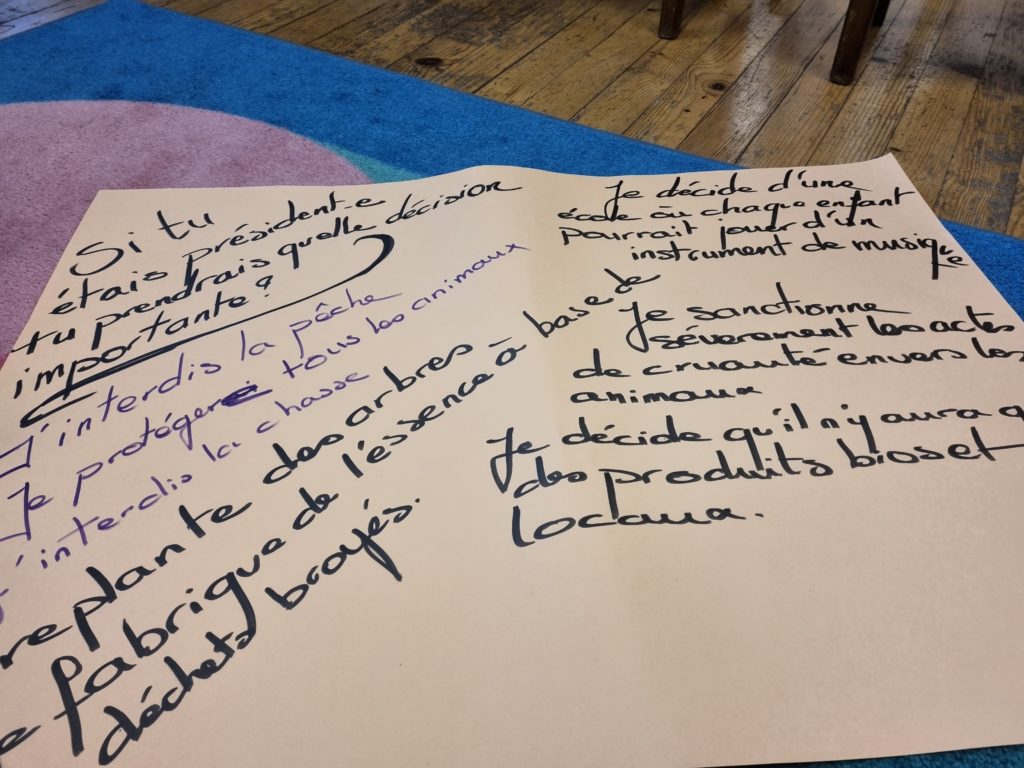 Si tu
étais président-e
tu prendrais quelle décision
importante?
J'interdis la pêche
Je protége tous les animaux
J'interdis la chasse
replante des arbres
fabrique de l'éssence à base de
déchets broyés.
Je décide d'une
école où chaque enfant
pourrait jouer d'un
instrument de musique
Je sanctionne
sévèrement les actes
de cruauté envers les
animaux
Je décide qu'il n'y aura q
des produits bios et
locaux.